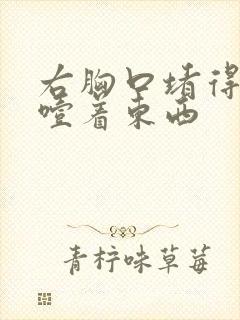 右胸口堵得
噎着东西
青柠味草莓